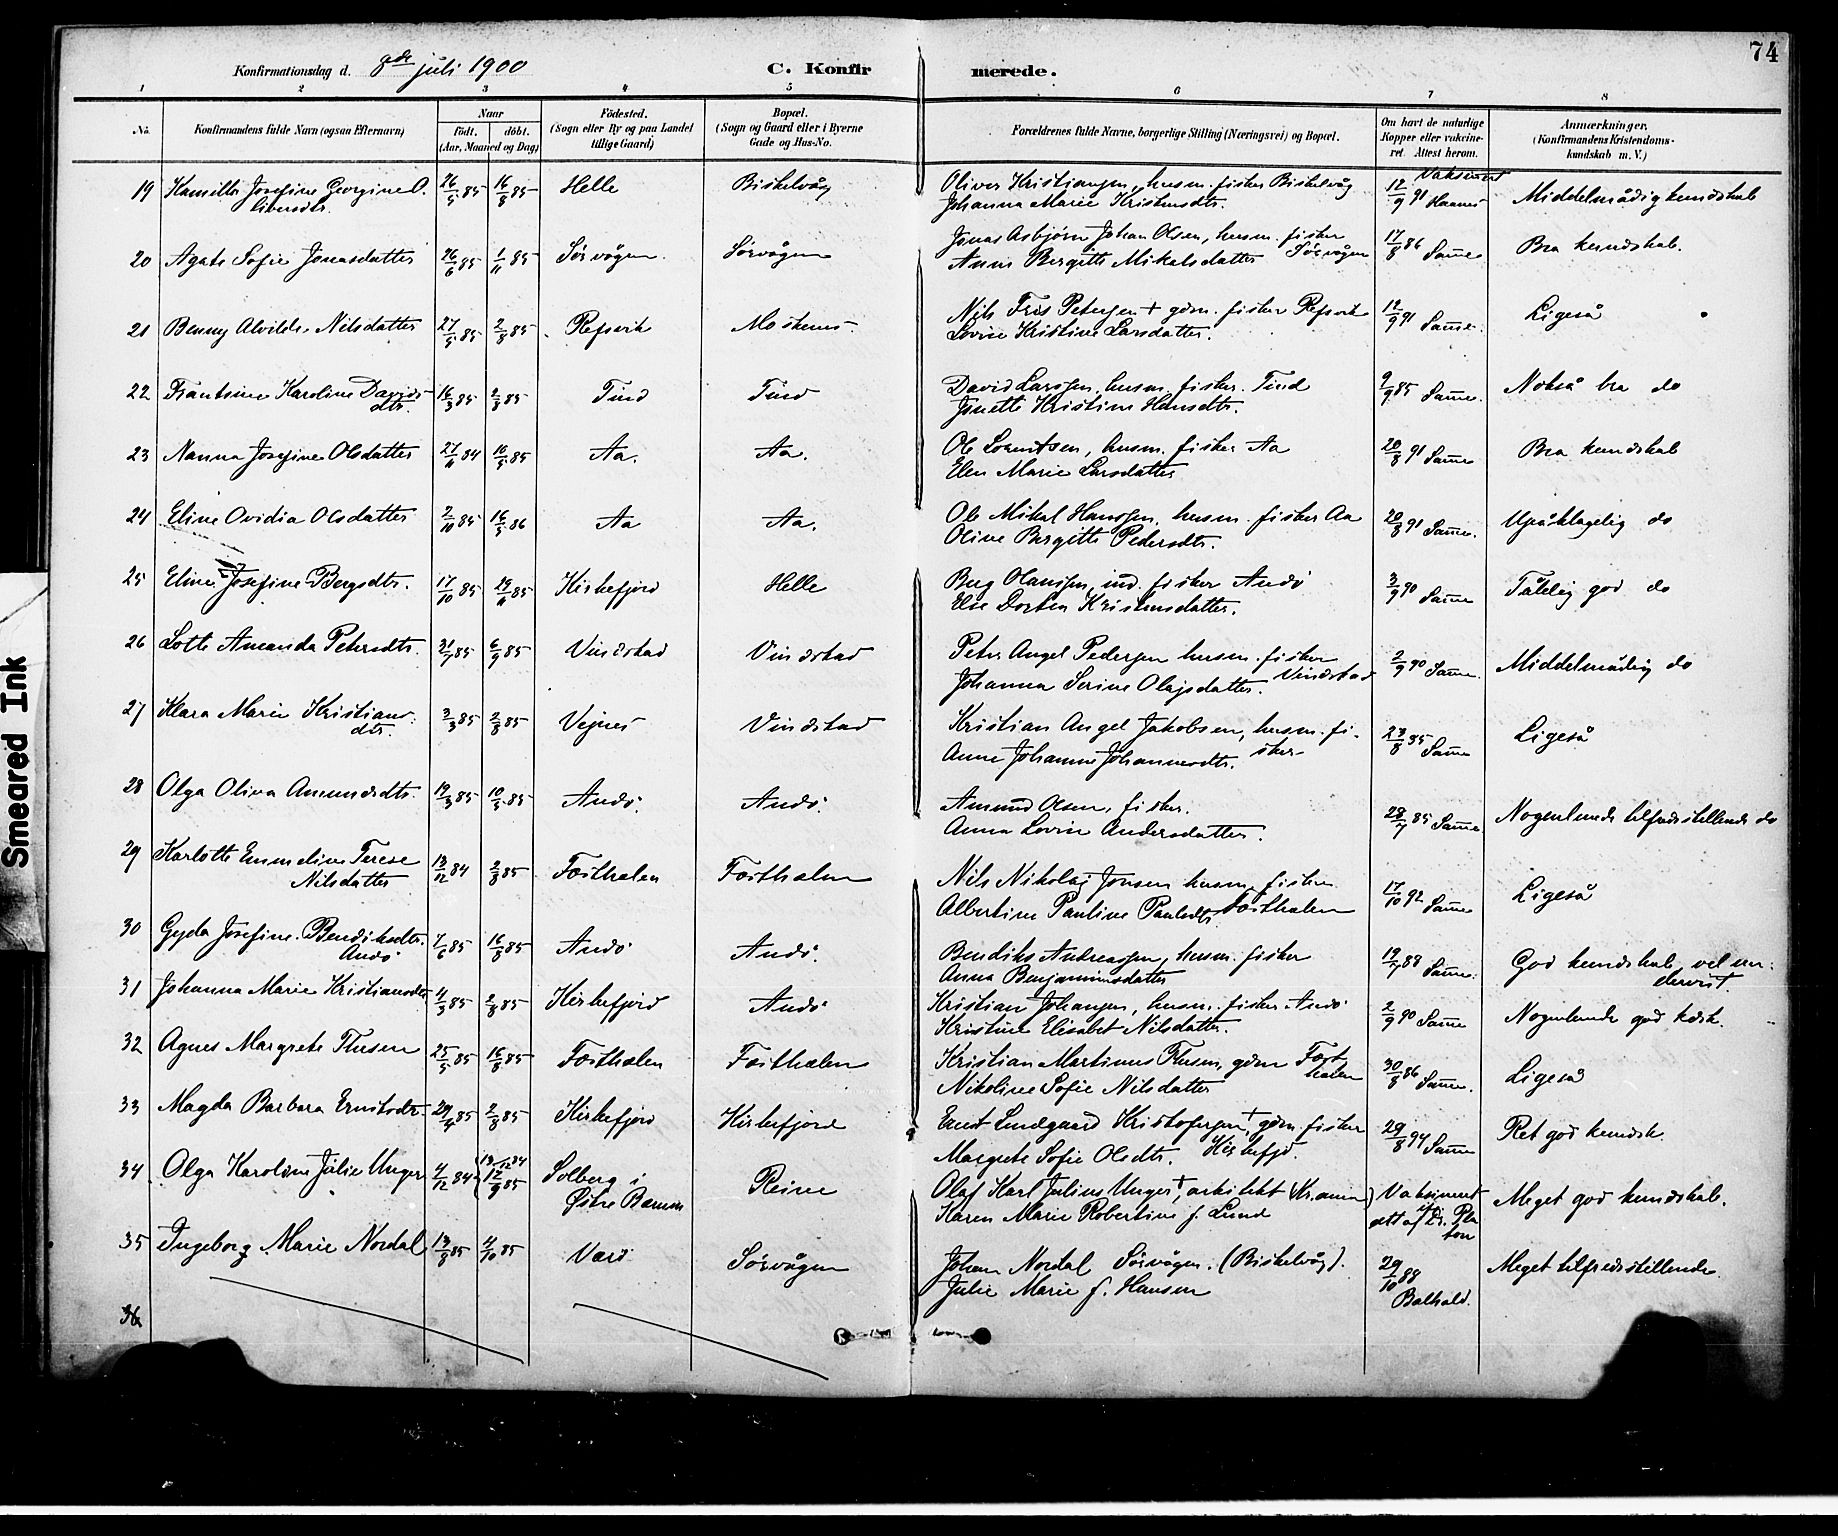 74
Konfirmationsdag d. 8de juli 1900
C. Konfirmerede.
1 2 3 4 5 6 7 8
No. Konfirmandens fulde Navn (ogsaa Efternavn) Naar födt. döbt. (Aar, Maaned og Dag) Födested. (Sogn eller By og paa Landet tillige Gaard) Bopæl. (Sogn og Gaard eller i Byerne Gade og Hus-No. Forældrenes fulde Navne, borgerlige Stilling (Næringsvei) og Bopæl. Om havt de naturlige Kopper eller vaksineret. Attest herom. Anmærkninger. (Konfirmandens Kristendomskundskab m. V.)
19 Kamilla Josefine Georgine O. 26/5 85 16/8 85 Helle Biskelvåg Oliver Kristiansen, husm. fisker Biskelvåg Vaksineret 12/9 91 Middelmådig kundskab
liversdtr. Johanna Marie Kristensdtr.
20 Agate Sofie Jonasdatter 26/6 85 1/11 85 Sörvågen Sörvågen Jonas Asbjörn Johan Olsen, husm. fisker 17/8 86 Samme Bra kundskab.
Anne Bergitte Mikalsdatter Sörvågen
21 Benny Alvilde Nilsdatter 27/5 85 2/8 85 Refsvik Moskenes Nils Fris Petersen + gdm. fisker Refsvik 12/9 91 Samme. Ligeså
Lovise Kristine Larsdatter.
22 Frantsine Karoline Davids- 16/3 85 2/8 85 Tind Tind David Larssen, husm. fisker. Tind 9/9 85 Samme. Nokså bra do
dtr. Jonette Kristine Hansdtr.
23 Nanna Josefine Olsdatter 27/11 84 10/5 85 Aa. Aa. Ole Lorentsen, husm. fisker Aa 20/8 91 Samme Bra kundskab
Elen Marie Larsdatter
24 Eline Ovidia Olsdatter 2/10 85 16/5 86 Aa Aa. Ole Mikal Hanssen, husm. fisker Aa 20/8 91 Samme. Upåklagelig do
Oline Bergitte Pedersdtr.
25 Eline Josefine Bergsdtr. 17/10 85 29/11 85 Kirkefjord Helle Berg Olaussen, ind. fisker Andö 3/9 90 Samme Tålelig god do
Else Dortea Kristensdatter.
26 Lotte Amanda Petersdtr. 31/7 85 6/9 85 Vindstad Vindstad Peter Angel Pedersen husm. fisker 2/9 90 Samme. Middelmådig do
Johanna Serine Olajsdatter. Vindstad
27 Klara Marie Kristians- 3/3 85 2/8 85 Vejnes Vindstad Kristian Angel Jakobsen, husm. fi- 23/8 85 Samme Ligeså
dtr. Anne Johanna Johannesdtr. sker
28 Olga Oliva Amundsdtr. 19/3 85 10/5 85 Andö. Andö. Amund Olsen, fisker. 28/7 85 Samme Nogenlunde tilfredsstillende do
Anna Lovise Andersdatter.
29 Karlotte Emmeline Terese 13/12 84 2/8 85 Forsthalen Forsthalen Nils Nikolaj Jonsen husm. fisker 17/10 92 Samme Ligeså
Nilsdatter Albertine Pauline Paulsdtr. Forsthalen
30 Gyda Josefine Bendiksdtr. 7/6 85 16/8 85 Andö Andö. Bendiks Andreassen, husm. fisker 19/7 88 Samme. God kundskab, vel un-
Andö Anna Benjaminsdatter dervist
31 Johanna Marie Kristiansdtr. 4/3 85 2/8 85 Kirkefjord Andö Kristian Johansen, husm. fisker Andö 2/9 90 Samme Nogenlunde god kdsk.
Kristine Elisabet Nilsdatter.
32 Agnes Margrete Thesen 25/5 85 16/8 85 Forsthalen Forsthalen Kristian Martinus Thesen, gdm Forst- 30/8 86 Samme. Ligeså
halen
Nikoline Sofie Nilsdatter
33 Magda Barbara Ernstsdtr. 29/4 85 2/8 85 Kirkefjord Kirkefjord Ernst Lindgaard Kristofersen +, gdm. fisker 29/8 94 Samme Ret god kundsk.
Margrete Sofie Olsdtr. Kirkefjd.
34 Olga Karoline Julie Unger 4/12 84 13/12 84 12/9 85 Solberg i Reine Olaf Karl Julius Unger +, arkitekt (Kr.ania) Vaksineret Meget god kundskab.
Østre Karen Marie Robertine f. Lund att af Dr. Pla
ton
35 Ingeborg Marie Nordal 13/8 85 4/10 85 Værö Sörvågen Johan Nordal Sörvågen. (Biskelvåg). 29/10 88 Meget tilfredsstillende.
Julie Marie f. Hansen
36
Smeared Ink